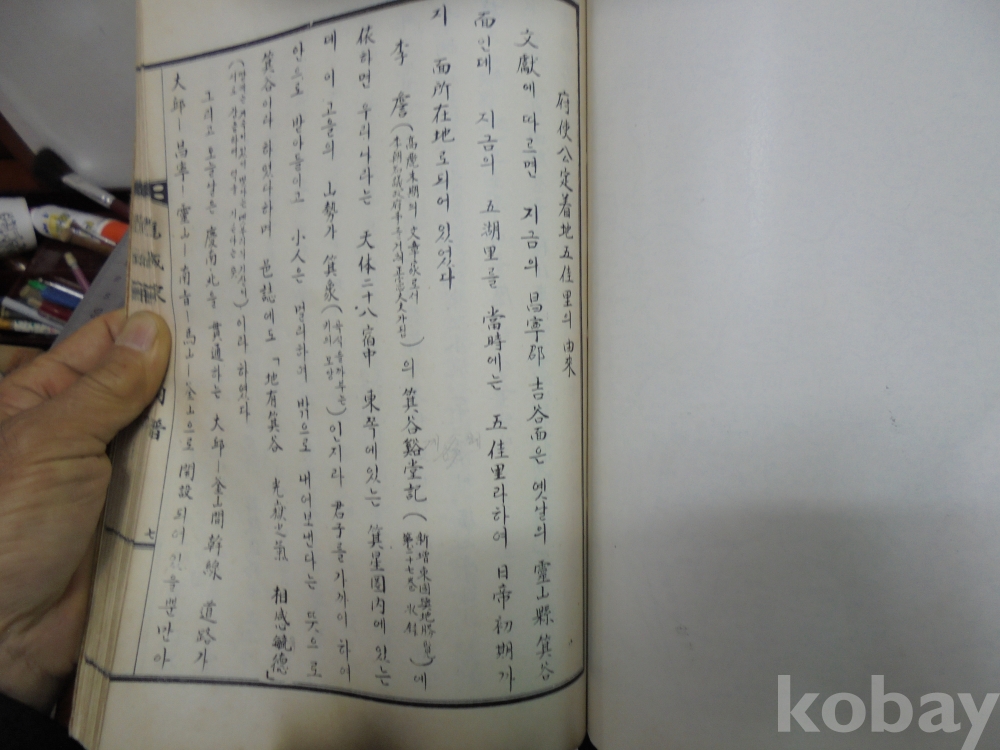 府使公定着地五佳里의 由來
文獻에 따르면 지금의 昌寧郡 吉谷面은 옛날의 靈山縣 箕谷
面인데 지금의 五湖里를 當時에는 五佳里라하여 日帝初期까
지 面所在地로되어 있었다
李詹(高麗末期의 文章家로서)의 箕谷谿堂記(新增東國輿地勝覽)에
依하면 우리나라는 天体二十八宿中 東쪽에있는 箕星圈內에 있는
데 이 고을의 山勢가 箕象(키의 모양)인지라 君子를가까이 하여
안으로 받아들이고 小人은 멀리하여 밖으로 내어보낸다는 뜻으로
箕谷이라 하였다하며 邑誌에도 「地有箕谷 光嶽之氣 相感毓德」
이라 하였다
그리고 오늘날은 慶南北을 貫通하는 大邱—釜山間幹線 道路가
大邱—昌寧—靈山—南旨—馬山—釜山으로 開設되어 있을뿐만아
七
kobay